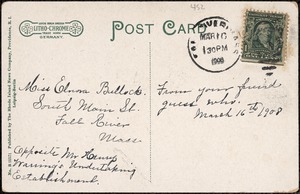 452
POST CARD
LITHO-CHROME
GERMANY
No. B 11071. Published by The Rhode Island News Company, Providence, R. I.
FALL RIVER
MAR 16
1 30PM
1908
Miss Edna Bullock
South Main St.
Fall River
Mass.
Opposite Mr Henry
Waring's Undertaking
Establishment.
From your friend
guess who.
March 16th 1908